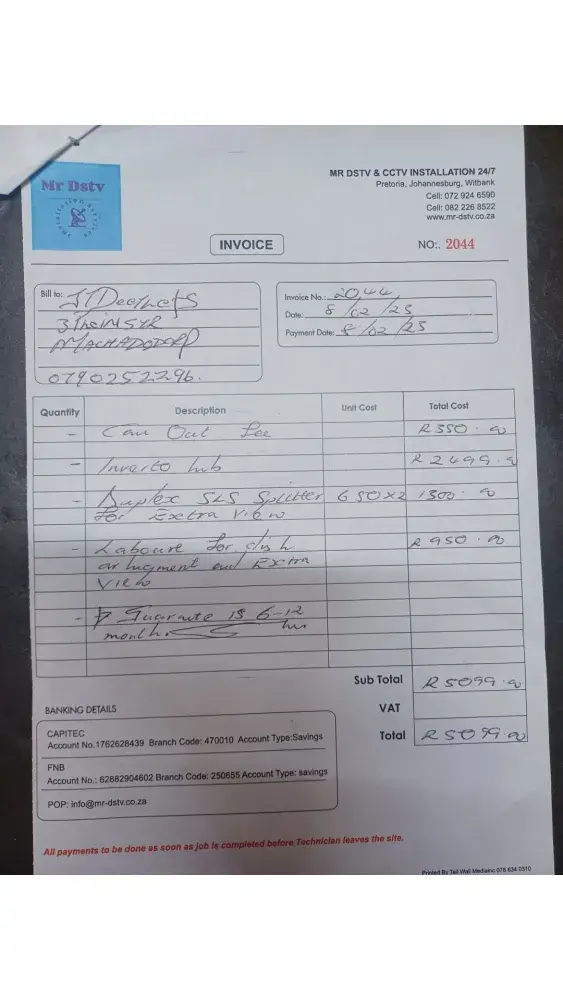 Mr Dstv
Installation Services
MR DSTV & CCTV INSTALLATION 24/7
Pretoria, Johannesburg, Witbank
Cell: 072 924 6590
Cell: 082 226 8522
www.mr-dstv.co.za
INVOICE
NO:. 2044
Bill to:
MACHADODORP
0790252296.
Invoice No.: 2044
Date: 8/02/25
Payment Date: 8/02/25
Quantity Description Unit Cost Total Cost
- Call Out fee R350.00
- Inverto hub R2499.00
- Duplex SLS Splitter 650x2 1300.00
for Extra View
- Labour for dish R950.00
and Extra
View
- is 6-12
months
Sub Total R5099.00
VAT
Total R5099.00
BANKING DETAILS
CAPITEC
Account No.1762628439 Branch Code: 470010 Account Type:Savings
FNB
Account No.: 62882904602 Branch Code: 250655 Account Type: savings
POP: info@mr-dstv.co.za
All payments to be done as soon as job is completed before Technician leaves the site.
Printed By Tell Wall Mediainc 078 634 0310